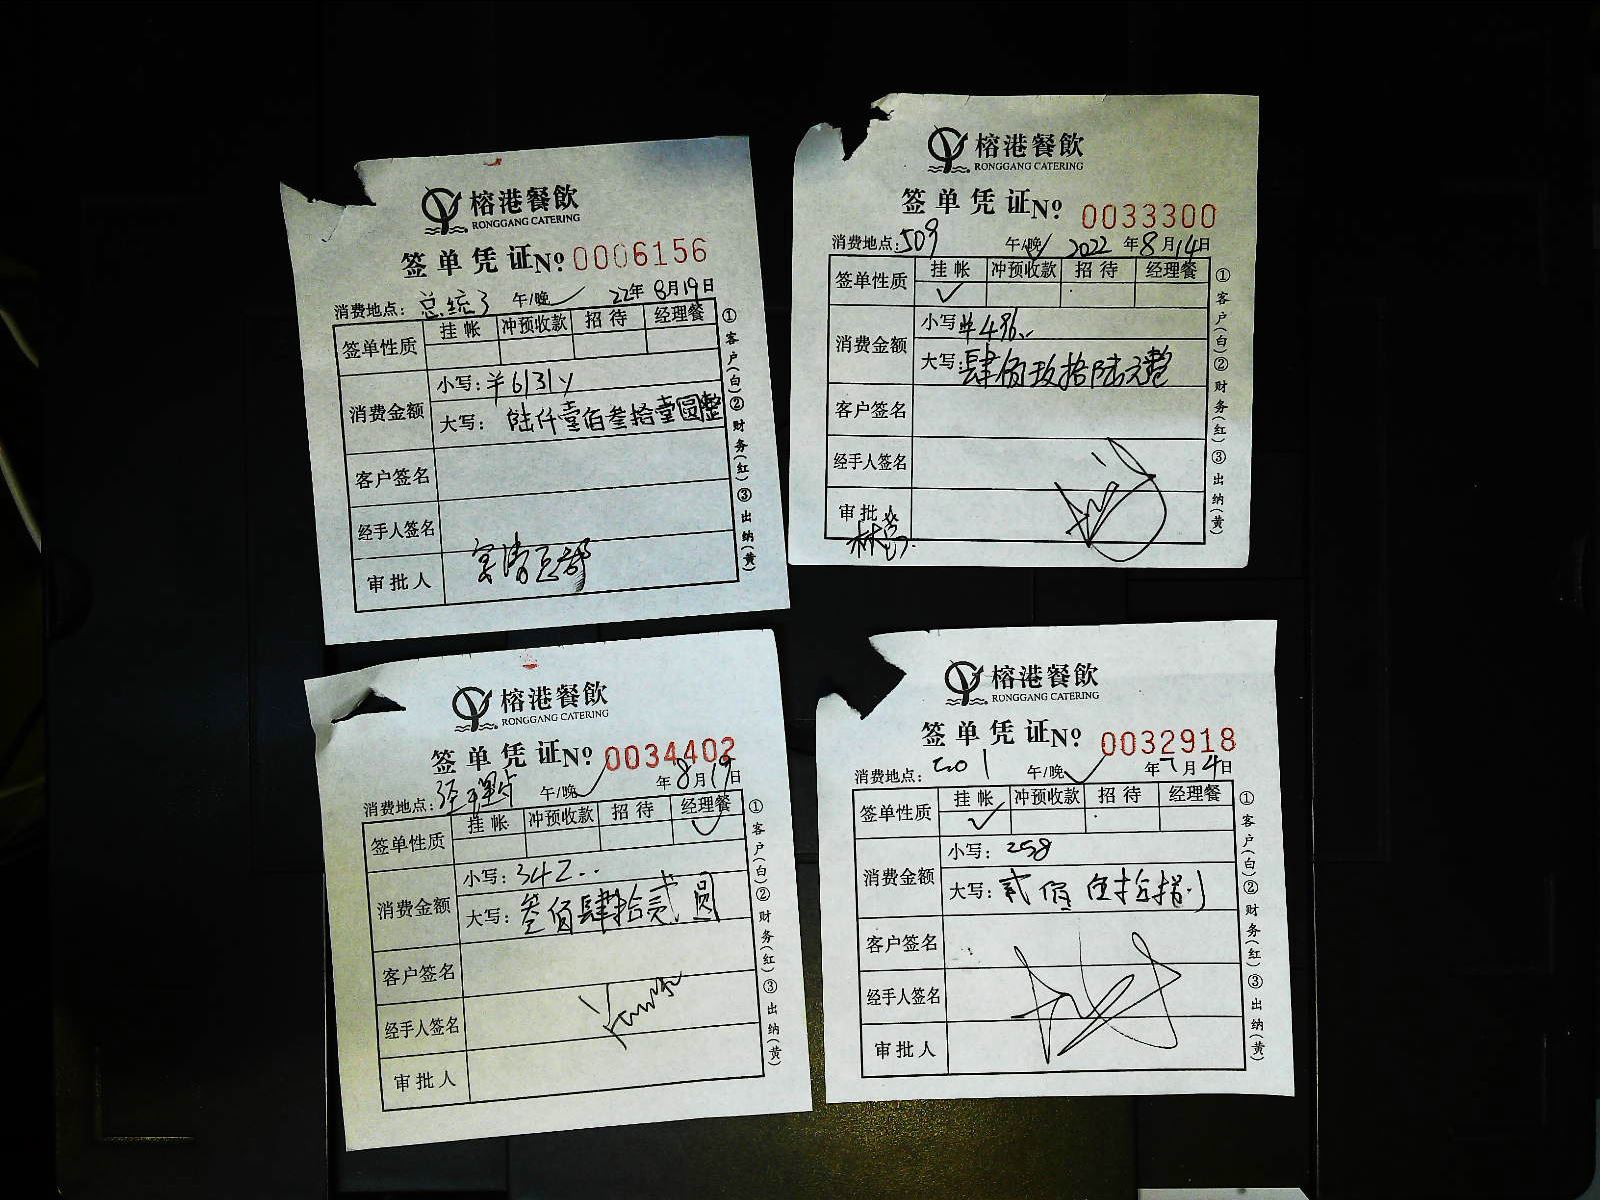 榕港餐飲
RONGGANG CATERING
签单凭证No 0006156
消费地点：总统3 午/晚✓ 22年8月19日
签单性质 挂帐 冲预收款 招待 经理餐
消费金额
小写：¥6131
大写：陆仟壹佰叁拾壹圆整
客户签名
经手人签名
审批人
①客户(白)②财务(红)③出纳(黄)
榕港餐飲
RONGGANG CATERING
签单凭证No 0033300
消费地点：509 午/晚✓ 2022年8月14日
签单性质 挂帐 冲预收款 招待 经理餐
✓
消费金额
小写¥496
大写：肆佰玖拾陆元整
客户签名
经手人签名
审批人
①客户(白)②财务(红)③出纳(黄)
榕港餐飲
RONGGANG CATERING
签单凭证No 0034402
消费地点：经理 午/晚✓ 年8月19日
签单性质 挂帐 冲预收款 招待 经理餐
✓
消费金额
小写：342
大写：叁佰肆拾贰圆
客户签名
经手人签名
审批人
①客户(白)②财务(红)③出纳(黄)
榕港餐飲
RONGGANG CATERING
签单凭证No 0032918
消费地点：201 午/晚✓ 年7月4日
签单性质 挂帐 冲预收款 招待 经理餐
✓
消费金额
小写：258
大写：贰佰伍拾捌
客户签名
经手人签名
审批人
①客户(白)②财务(红)③出纳(黄)